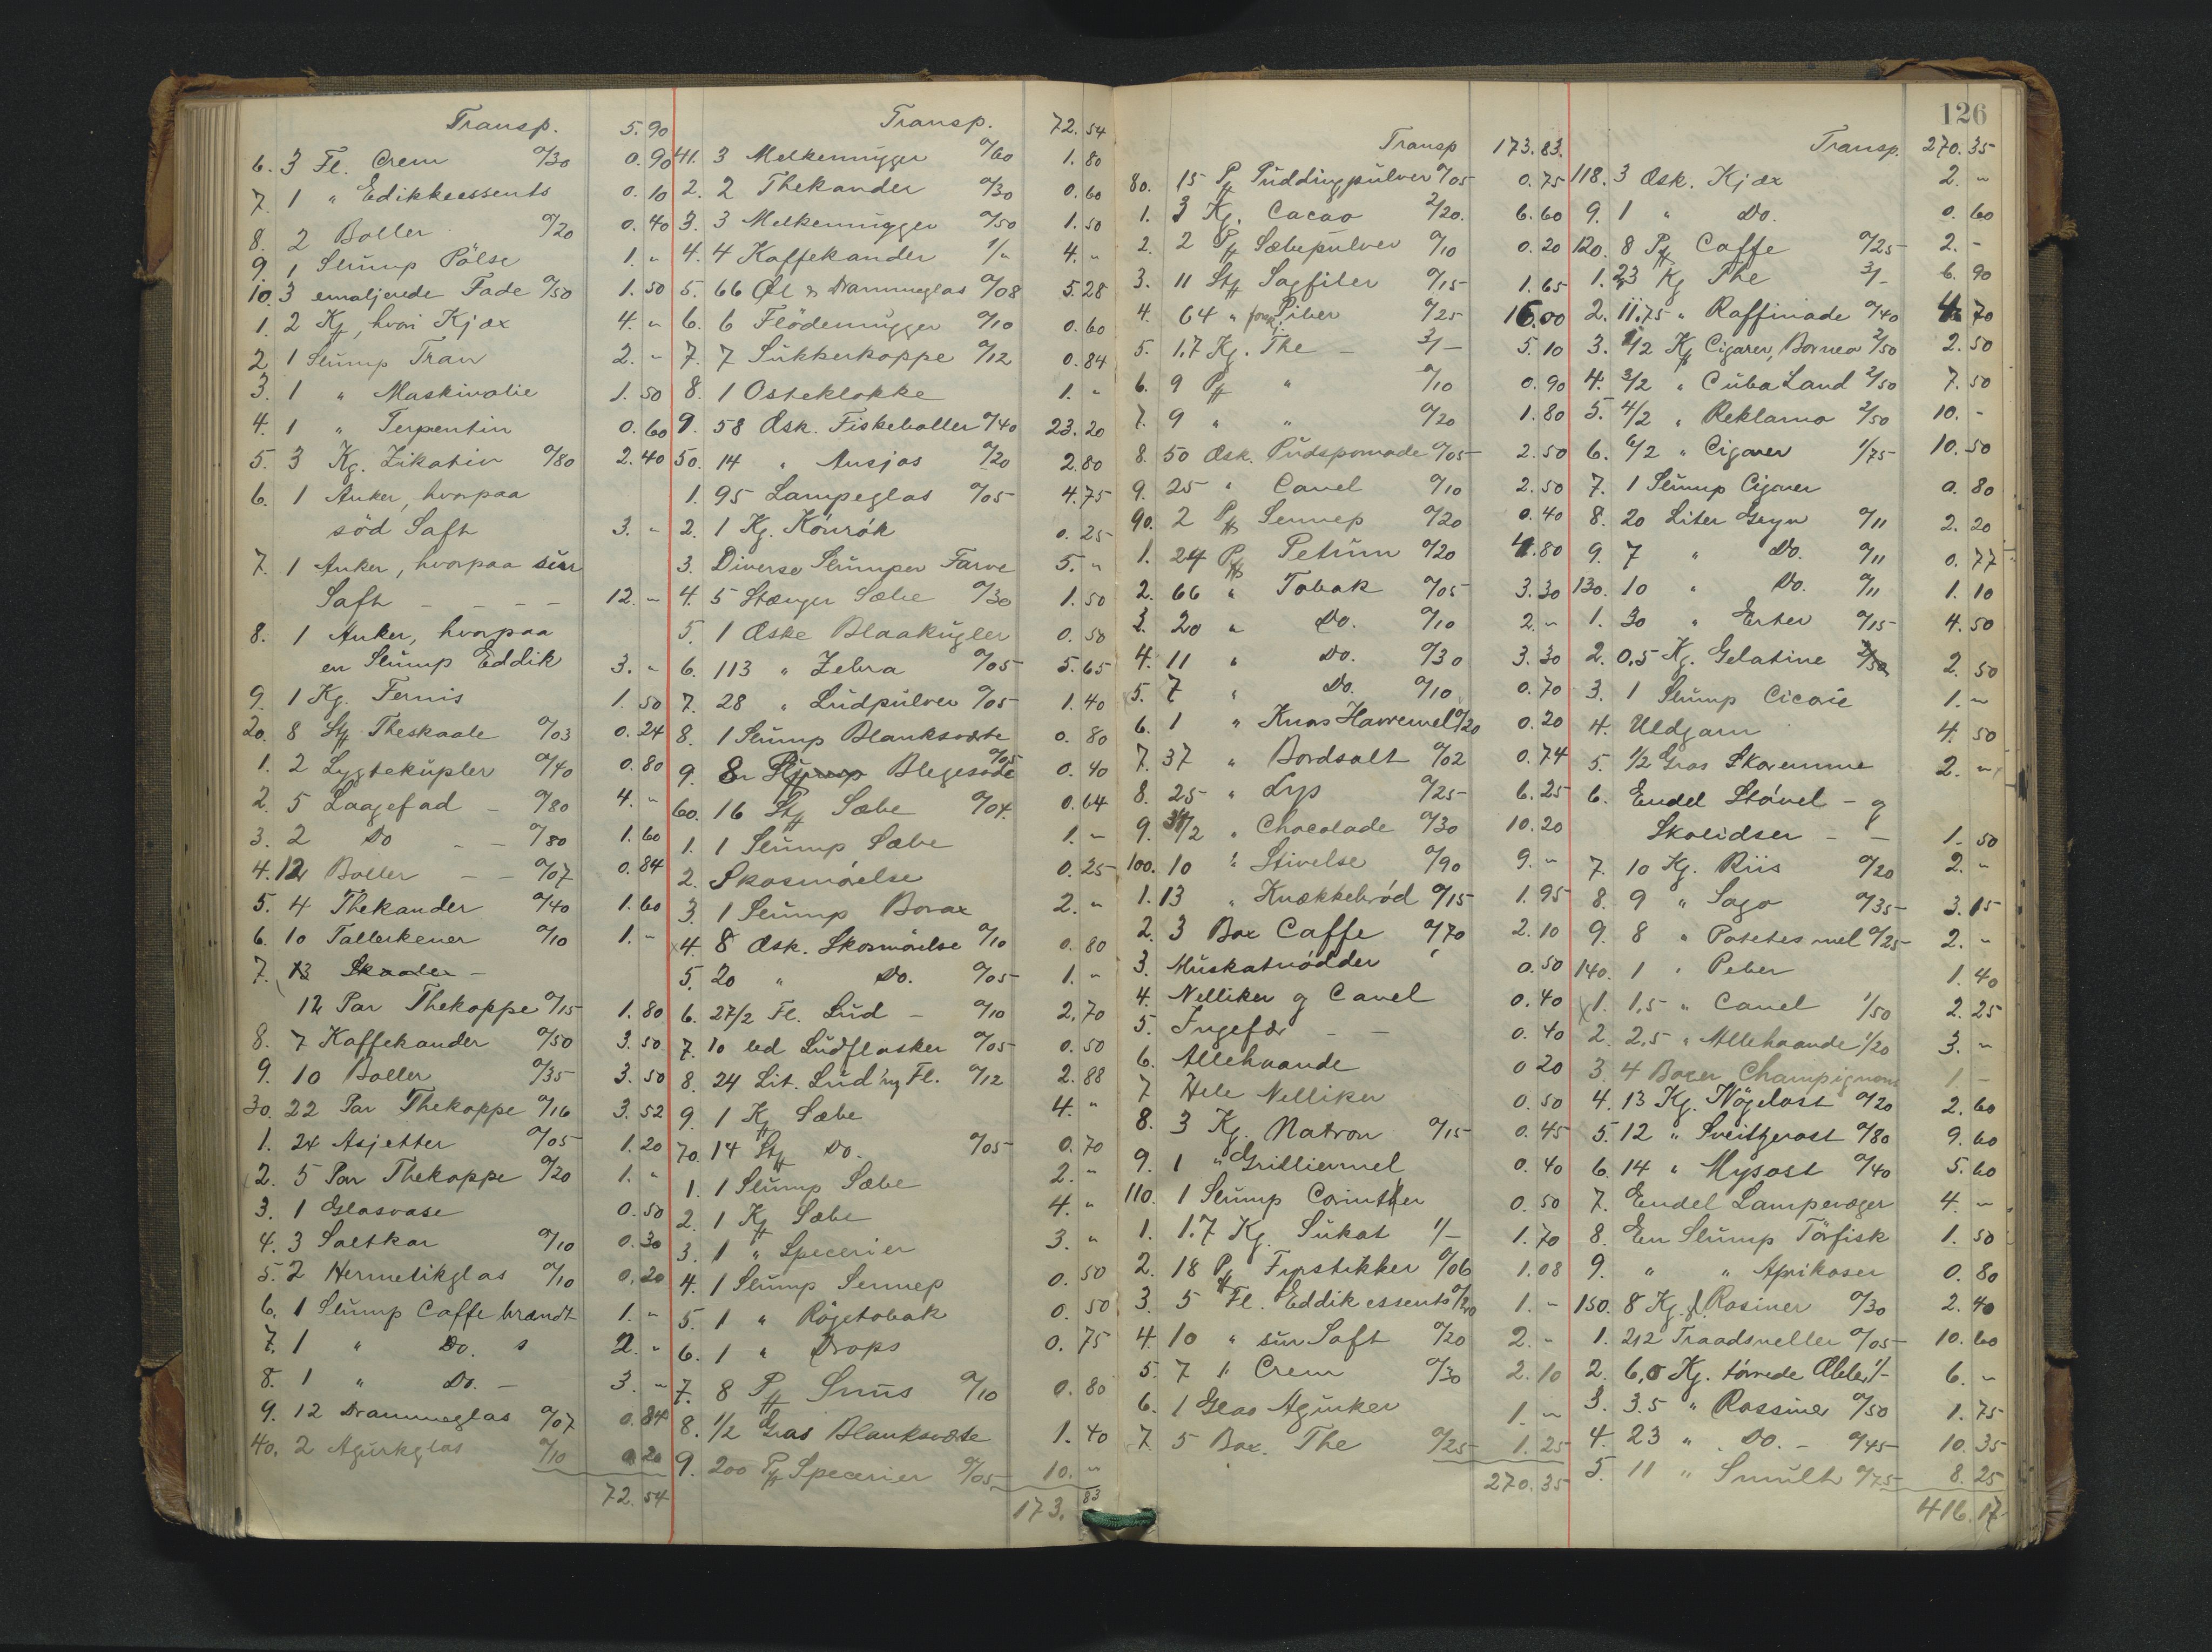 Transp. 5.90
6. 3 Fl. Crem 0/30 0.90
7. 1 " Edikkeessents 0.10
8. 2 Boller 0/20 0.40
9. 1 Slump Pölse 1. "
10. 3 emaljerede Fade 0/50 1.50
1. 2 Kj, hvori Kjæx 4. "
2. 1 Slump Tran 2. "
3. 1 " Maskinolie 1.50
4. 1 " Terpentin 0.60
5. 3 Kg. Zikativ 0/80 2.40
6. 1 Anker, hvorpaa
söd Saft 3. "
7. 1 Anker, hvorpaa sur
Saft - - - - 12. "
8. 1 Anker, hvorpaa
en Slump Eddik 3. "
9. 1 Kg. Fernis 1.50
20. 8 Stk Theskaale 0/03 0.24
1. 2 Lygtekupler 0/40 0.80
2. 5 Laagefad - 0/80 4. "
3. 2 Do - - 0/80 1.60
4. 12 Boller - - 0/07 0.84
5. 4 Thekander 0/40 1.60
6. 10 Tallerkener 0/10 1. -
7. 13 Skaaler -
12 Par Thekoppe 0/15 1.80
8. 7 Kaffekander 0/50 3.50
9. 10 Boller 0/35 3.50
30. 22 Par Thekoppe 0/16 3.52
1. 24 Asjetter 0/05 1.20
2. 5 Par Thekoppe 0/20 1. "
3. 1 Glasvase 0.50
4. 3 Saltkar 0/10 0.30
5. 2 Hermetikglas 0/10 0.20
6. 1 Slump Caffe brændt 1. "
7. 1 " Do. 2. "
8. 1 " Do. - 3. "
9. 12 Drammeglas 0/07 0.84
40. 2 Agurkglas 0/10 0.20
72.54
Transp. 72.54
41. 3 Melkemugger 0/60 1.80
2. 2 Thekander 0/30 0.60
3. 3 Melkemugger 0/50 1.50
4. 4 Kaffekander 1/" 4. "
5. 66 Øl & Drammeglas 0/08 5.28
6. 6 Flödemugger 0/10 0.60
7. 7 Sukkerkoppe 0/12 0.84
8. 1 Osteklokke 1. "
9. 58 Æsk. Fiskeboller 0/40 23.20
50. 14 " Ansjos 0/20 2.80
1. 95 Lampeglas 0/05 4.75
2. 1 Kg. Könrök 0.25
3. Diverse Slumper Farve 5. "
4. 5 Stænger Sæbe 0/30 1.50
5. 1 Æske Blaakugler 0.50
6. 113 " Zebra 0/05 5.65
7. 28 " Ludpulver 0/05 1.40
8. 1 Slump Blanksværte 0.80
9. 8 Blegesoda 0/05 0.40
60. 16 Stk Sæbe 0/04 0.64
1. 1 Slump Sæbe 1. -
2. Skosmörelse 0.25
3. 1 Slump Borax 2. "
4. 8 Æsk. Skosmörelse 0/10 0.80
5. 20 " Do. 0/05 1. "
6. 27/2 Fl. Lud - 0/10 2.70
7. 10 led Ludflasker 0/05 0.50
8. 24 Lit. Lud Fl. 0/12 2.88
9. 1 Kj Sæbe 4. "
70. 14 Stk Do. 0/05 0.70
1. 1 Slump Sæbe 2. "
2. 1 Kj Sæbe 4. "
3. 1 " Specerier 3. "
4. 1 Slump Sennep 0.50
5. 1 " Røgetobak 0.50
6. 1 " Drops 0.75
7. 8 Pk Snus 0/10 0.80
8. 1/2 Gros Blanksværte 1.40
9. 200 Pk Specerier 0/05 10. "
173.83
Transp 173.83.
80. 15 Pk Puddingpulver 0/05 0.75
1. 3 Kg. Cacao 2/20. 6.60
2. 2 Pk Sæbepulver 0/10 0.20
3. 11 Stk Sagfiler 0/15 1.65
4. 64 " Piber 0/25 16.00
5. 1.7 Kg. The - 3/- 5.10
6. 9 Pk " 0/10 0.90
7. 9 " " 0/20 1.80
8. 50 Æsk. Pudspomade 0/05 2.50
9. 25 " Canel 0/10 2.50
90. 2 Pk Sennep 0/20 0.40
1. 24 Pk Petrum 0/20 4.80
2. 66 " Tobak 0/05 3.30
3. 20 " Do. 0/10 2. "
4. 11 " Do. 0/30 3.30
5. 7 " Do. 0/10 0.70
6. 1 " Knos Havremel 0/20 0.20
7. 37 " Bordsalt 0/02 0.74
8. 25 " Lys 0/25 6.25
9. 34/2 " Chocolade 0/30 10.20
100. 10 " Stivelse 0/90 9. "
1. 13 " Knækkebröd 0/15 1.95
2. 3 Box Caffe 0/70 2.10
3. Muskatnödder 0.50
4. Nelliker og Canel 0.40
5. Ingefær - - 0.40
6. Allehaande 0.20
7 Hele Nelliker 0.50
8. 3 Kg. Natron 0/15 0.45
9. 1 " Grilliermel 0.40
110. 1 Slump Corinther 0.50
1. 1.7 Kg. Sukat 1/- 1.70
2. 18 Pk Fyrstikker 0/06 1.08
3. 5 Fl. Eddikessents 0/20 1. -
4. 10 " sur Saft 0/20 2. "
5. 7 " Crem 0/30 2.10
6. 1 Glas Agurker 1. "
7. 5 Box. The 0/25 1.25
270.35
126
Transp. 270.35
118. 3 Æsk. Kjæx 2. "
9. 1 " Do. 0.60
120. 8 Pk Caffe 0/25 2. -
1. 2,3 Kg The 3/- 6.90
2. 11.75 " Raffinade 0/40 4.70
3. 1/2 Kj Cigarer, Borneo 2/50 2.50
4. 3/2 " Cuba Land 2/50 7.50
5. 4/2 " Reklamo 2/50 10. -
6. 6/2 " Cigarer 1/75 10.50
7. 1 Slump Cigarer 0.80
8. 20 Liter Gryn 0/11 2.20
9. 7 " Do. 0/11 0.77
130. 10 " Do. 0/11 1.10
1. 30 " Erter 0/15 4.50
2. 0,5 Kg. Gelatine 2.50
3. 1 Slump Cicorie 1. -
4. Uldgarn 4.50
5. 1/2 Gros Skoremme 2. "
6. Endel Stövel - og
Skolidser - - 1.50
7. 10 Kg. Riis 0/20 2. "
8. 9 " Sago 0/35 3.15
9. 8 " Potetesmel 0/25 2. "
140. 1 " Peber 1.40
1. 1,5 " Canel 1/50 2.25
2. 2,5 " Allehaande 1/20 3. "
3. 4 Boxer Champignons 1. -
4. 13 Kg. Nögelost 0/20 2.60
5. 12 " Sveitzerost 0/80 9.60
6. 14 " Mysost 0/40 5.60
7. Endel Lampevæger 4. "
8. En Slump Törfisk 1.50
9. " " Aprikoser 0.80
150. 8 Kg. Rosiner 0/30 2.40
1. 212 Traadsneller 0/05 10.60
2. 6,0 Kg. törrede Æbler 1/- 6. "
3. 3.5 " Rossiner 0/50 1.75
4. 23 " Do. - 0/45 10.35
5. 11 " Smult 0/75 8.25
416.17